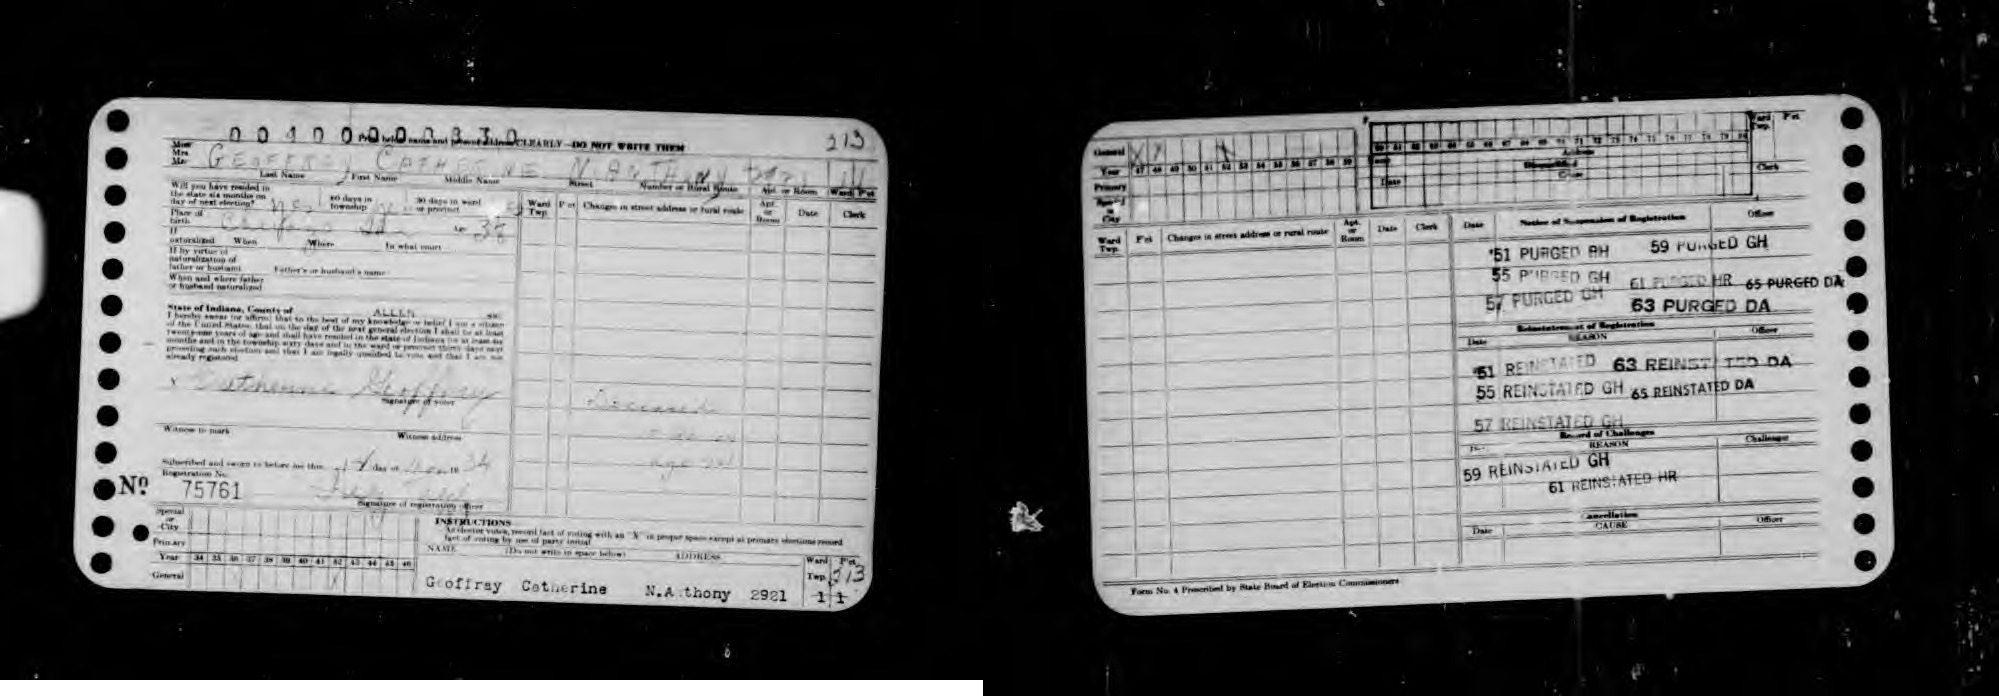 0 0 1 0 0 0 0 0 3 3 0
CLEARLY—DO NOT WRITE THEM
213
Miss
Mrs.
Mr.
GEOFFREY CATHERINE N. ANTHONY 2921 11
Last Name First Name Middle Name Street Number or Rural Route Apt. or Room Ward P'ct
Will you have resided in the state six months on day of next election? Yes 60 days in township 30 days in ward or precinct
Place of birth Chicago Age 38
If naturalized When Where In what court
If by virtue of naturalization of father or husband Father's or husband's name
When and where father or husband naturalized
State of Indiana, County of ALLEN ss:
I hereby swear (or affirm) that to the best of my knowledge or belief I am a citizen
of the United States; that on the day of the next general election I shall be at least
twenty-one years of age and shall have resided in the state of Indiana for at least six
months and in the township sixty days and in the ward or precinct thirty days next
preceding such election and that I am legally qualified to vote and that I am not
already registered
X Catherine Geoffrey
Signature of voter
Witness to mark Witness address
Subscribed and sworn to before me this day of 19 34
Registration No.
No 75761
Signature of registration officer
Ward Twp. P'ct Changes in street address or rural route Apt. or Room Date Clerk
Deceased
Special or City
Primary
Year 34 35 36 37 38 39 40 41 42 43 44 45 46
General
INSTRUCTIONS
As elector votes, record fact of voting with an "X" in proper space except at primary elections record
fact of voting by use of party initial
NAME (Do not write in space below) ADDRESS Ward Twp. P'ct
213
Geoffray Catherine N.A thony 2921 11
General X X X
Year 47 48 49 50 51 52 53 54 55 56 57 58 59
Primary
Special or City
Ward Twp. P'ct
Clerk
Date
Ward Twp. P'ct Changes in street address or rural route Apt. or Room Date Clerk
Date Notice of Suspension of Registration Officer
'51 PURGED RH 59 PURGED GH
55 PURGED GH 61 PURGED HR 65 PURGED DA
57 PURGED GH 63 PURGED DA
Reinstatement of Registration
Date REASON Officer
'51 REINSTATED 63 REINSTATED DA
55 REINSTATED GH 65 REINSTATED DA
57 REINSTATED GH
Record of Challenges
REASON Challenger
59 REINSTATED GH
61 REINSTATED HR
Cancellation
Date CAUSE Officer
Form No. 4 Prescribed by State Board of Election Commissioners